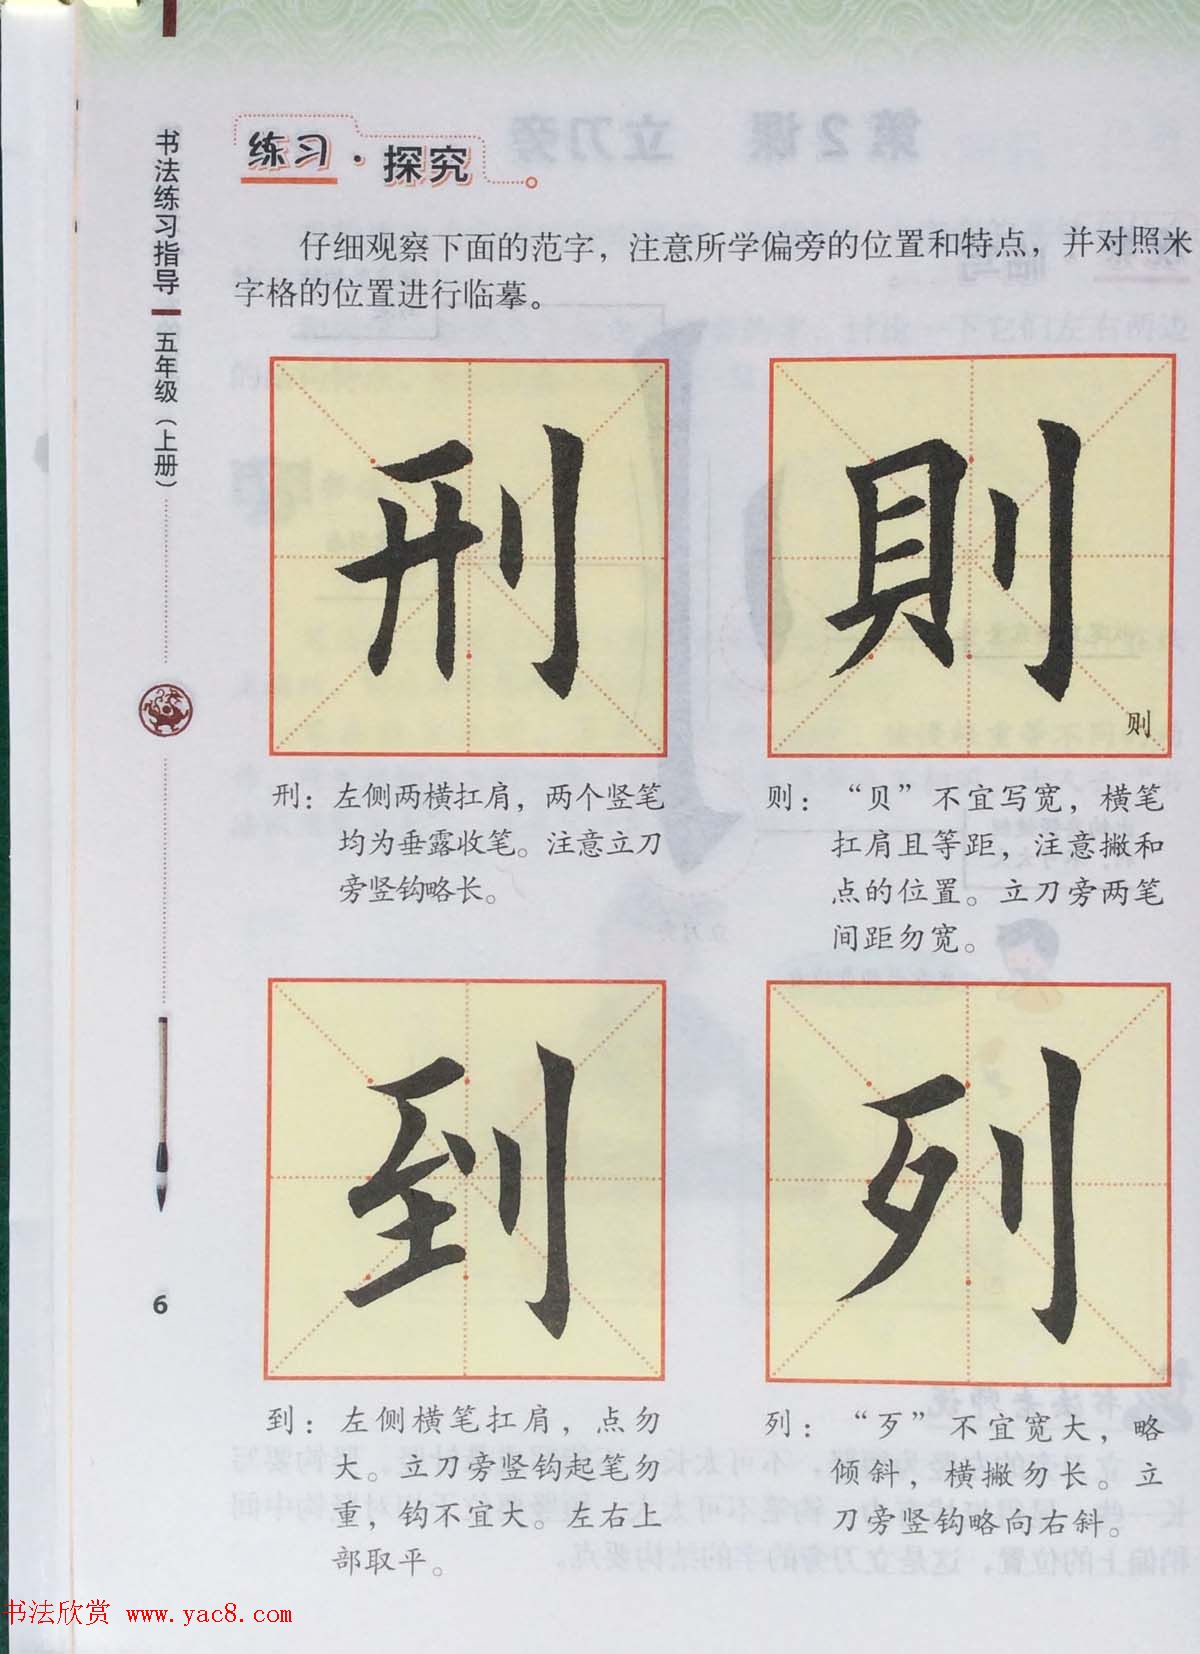 书法练习指导 五年级（上册）
练习·探究
仔细观察下面的范字，注意所学偏旁的位置和特点，并对照米
字格的位置进行临摹。
刑
則
则
刑：左侧两横扛肩，两个竖笔
均为垂露收笔。注意立刀
旁竖钩略长。
则：“贝”不宜写宽，横笔
扛肩且等距，注意撇和
点的位置。立刀旁两笔
间距勿宽。
到
列
到：左侧横笔扛肩，点勿
大。立刀旁竖钩起笔勿
重，钩不宜大。左右上
部取平。
列：“歹”不宜宽大，略
倾斜，横撇勿长。立
刀旁竖钩略向右斜。
6
书法欣赏 www.yac8.com